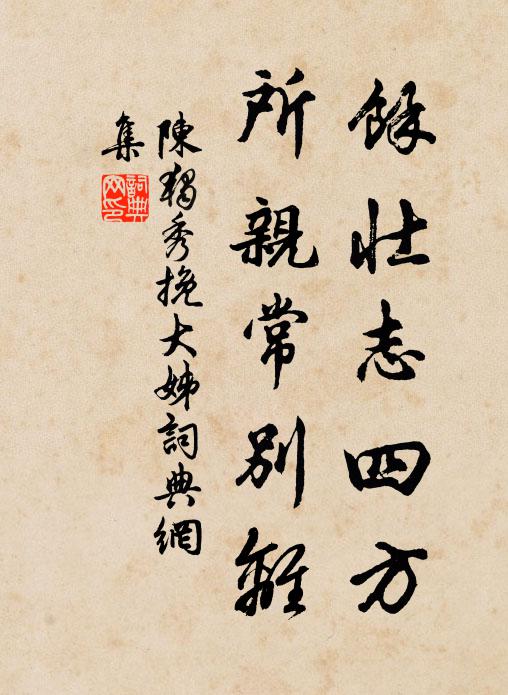 餘壯志四方
所親常別離
陳獨秀挽大姊詞典網
集
詞典
网印